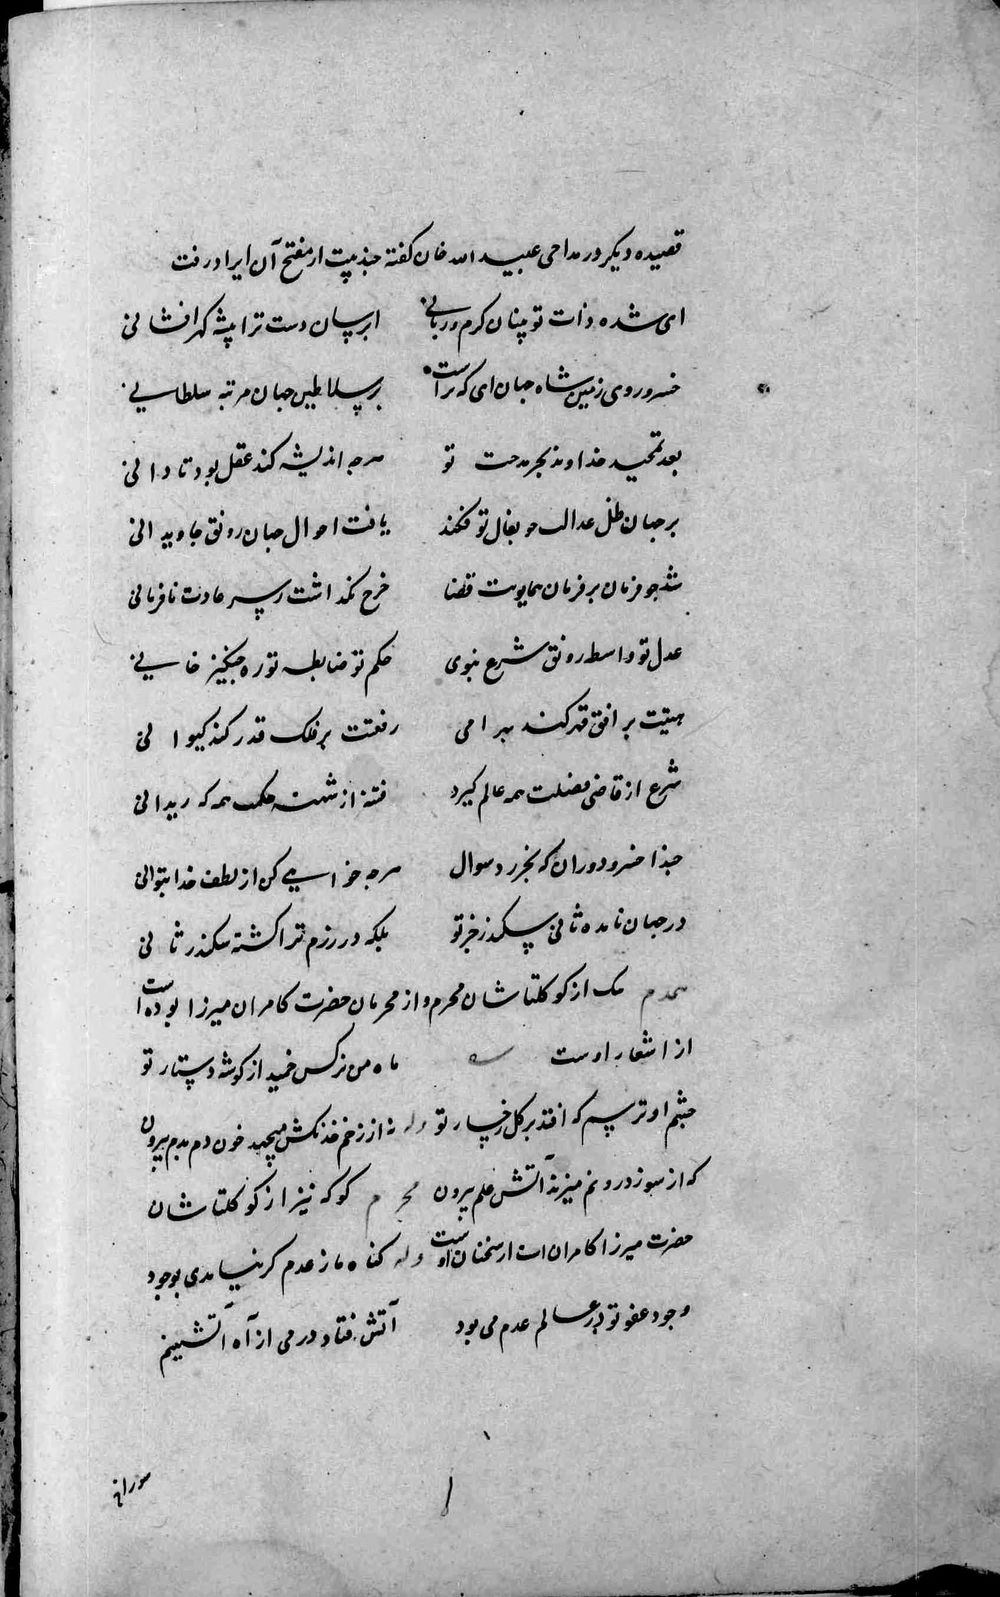 قصیده دیکر در مداحی عبید الله خان کفته چند بیت از مفتح آن ایراد رفت
ای شده ذات تو پنهان کرم ربانی ابر سان دست ترا پیشه کهر افشانی
خسرو روی زمین شاه جهان ای که تراست بر سلاطین جهان مرتبه سلطانی
بعد تحمید خداوند بجز مدحت تو هرچه اندیشه کند عقل بود نادانی
بر جهان ظل عدالت چو بفال تو فکند یافت احوال جهان رونق جاویدانی
شد چو فرمان بر فرمان همایونت قضا چرخ نکذاشت بسر عادت نافرمانی
عدل تو واسطه رونق شرع نبوی حکم تو ضابطه توره چنکیز خانی
هیبتت بر افق قهر کند بهرامی رفعتت بر فلک قدر کند کیوانی
شرع از قاضی فضلت همه عالم کیرد فتنه از شحنه حکمت همه که
حبذا خسرو دوران که بخیر رد سوال هرچه خواهی کن از لطف خدا بتوانی
در جهان نامده ثانی سکندر جز تو بلکه در رزم ترا کشته سکندر ثانی
همدم یک از کوکلتاشان محرم و از محرمان حضرت کامران میرزا بوده است
از اشعار اوست ماه من نرکس خمید از کوشه دستار تو
چشم او ترسم که افتد بر کل رخسار تو وله نه از زخم خدنکش میجهد خون دم بدم بیرون
که از سوز درونم میزند آتش علم بیرون محرم کوکه نیز از کوکلتاشان
حضرت میرزا کامران است از سخنان اوست وله کناه ما ز عدم کر نیامدی بوجود
وجود عفو تو در عالم عدم می بود آتش فتاد در می از آه آتشینم